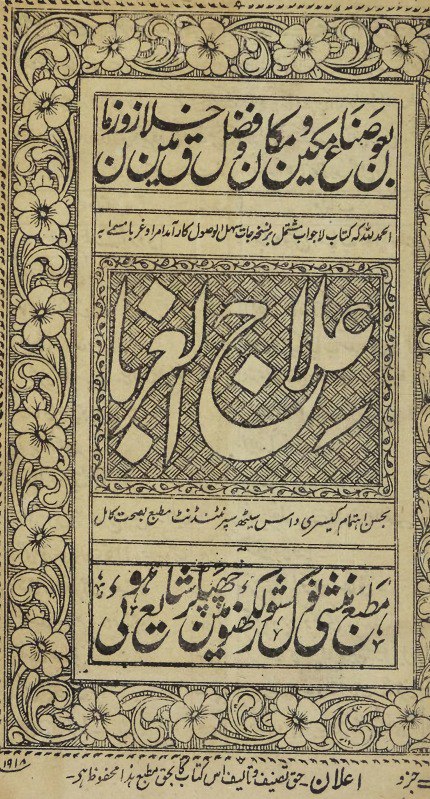 بعون صناع مکین و مکان و فضل خلاق زمین و زمان
الحمد للہ کہ کتاب لاجواب مشتمل بر نسخہ جات سہل الوصول کارآمد امرا و غربا مسمے بہ
علاج الغربا
بحسن اہتمام کیسری داس سیٹھ سپرنٹنڈنٹ مطبع بصحت کامل
مطبع منشی نولکشور لکھنؤ مین چھپکر شایع ہوئی
۱۹۱۸
جزو
اعلان - حق تصنیف و تالیف اس کتاب کا بحق مطبع ہذا محفوظ ہے -